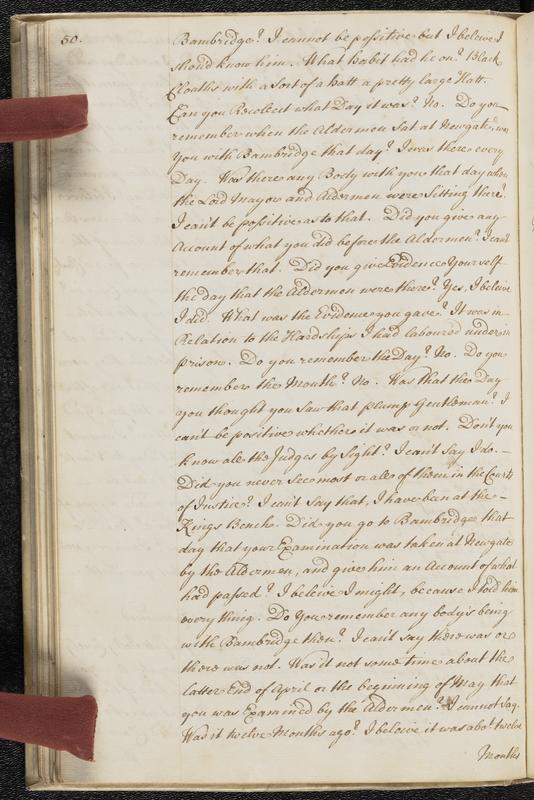 50.
Bambridge? I cannot be possitive but I beleive I
shoud know him. What habit had he on? Black
Cloaths with a sort of a hatt a pretty large Hatt.
Can you Recollect what Day it was? No. Do you
remember when the Aldermen sat at Newgate, was
You with Bambridge that day? I was there every
Day. Was there any Body with you that day when
the Lord Mayor and Aldermen were sitting there?
I can't be possitive as to that. Did you give any
Account of what you did before the Aldermen? I can't
remember that. Did you give Evidence Yourself
the day that the Aldermen were there? Yes, I beleive
I did. What was the Evidence you gave? It was in
Relation to the Hardships I had laboured under in
prison. Do you remember the Day? No. Do you
remember the Month? No. Was that the Day
you thought you saw that plump Gentleman? I
can't be positive whether it was or not. Don't you
know all the Judges by sight? I can't say I do. —
Did you never see most or all of them in the Courts
of Justice? I can't say that, I have been at the —
Kings Bench. Did you go to Bambridge that
day that your Examination was taken at Newgate
by the Aldermen, and give him an Account of what
had passed? I beleive I might, because I told him
every thing. Do You remember any body's being
with Bambridge then? I can't say there was or
there was not. Was it not some time about the
latter End of April or the beginning of May that
you was Examined by the Aldermen? I cannot say.
Was it twelve Months ago? I beleive it was abot. twelve
Months